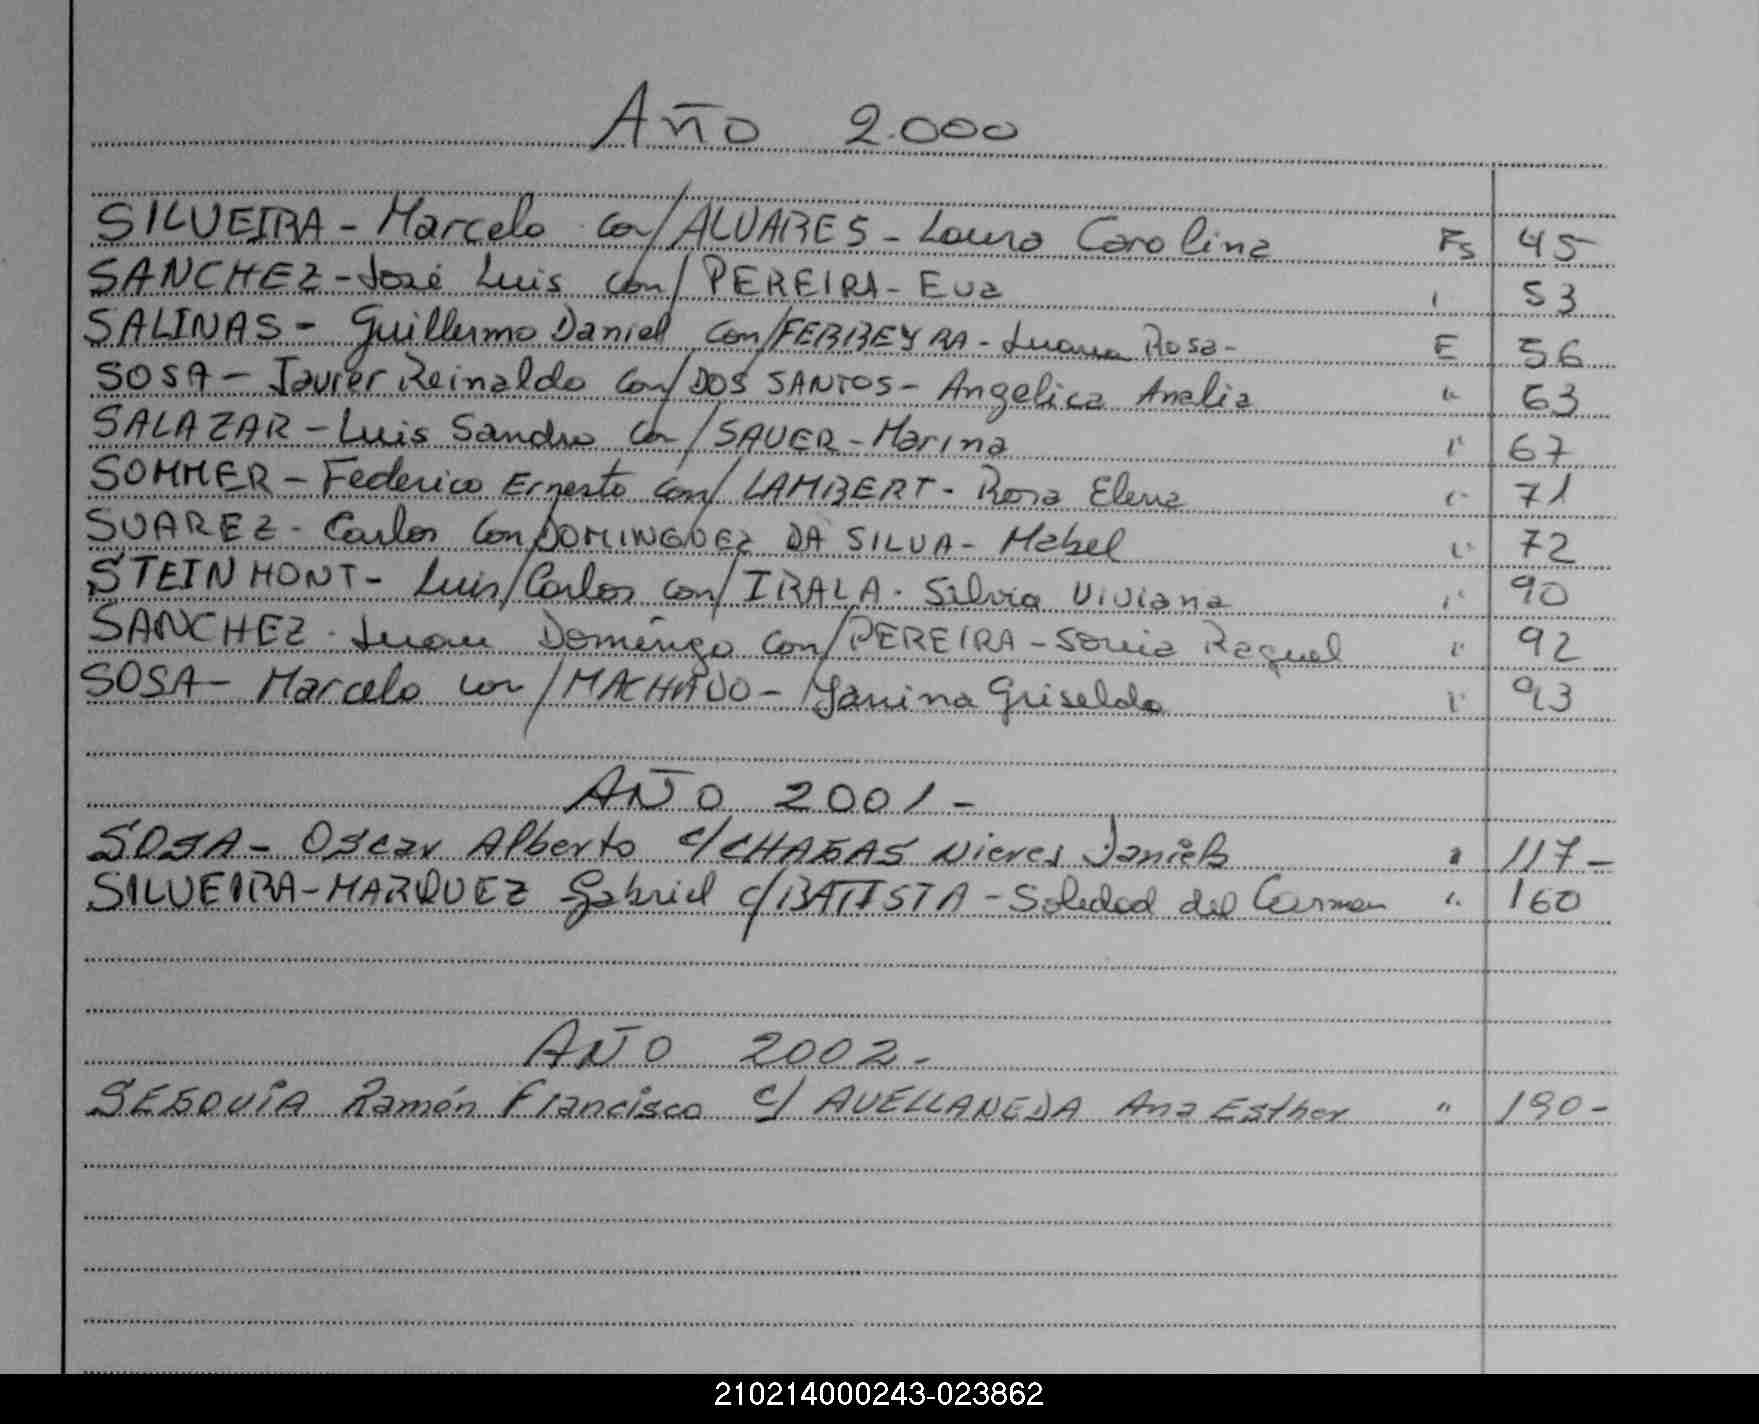 Año 2.000
SILVEIRA - Marcelo con/ALVARES - Laura Carolina Fs 45
SANCHEZ - José Luis con/PEREIRA - Eva " 53
SALINAS - Guillermo Daniel con/FERREYRA - Juana Rosa - F 56
SOSA - Javier Reinaldo con/DOS SANTOS - Angelica Analia " 63
SALAZAR - Luis Sandro con/SAUER - Marina " 67
SOMMER - Federico Ernesto con/LAMBERT - Rosa Elena " 71
SUAREZ - Carlos con/DOMINGUEZ DA SILVA - Mabel " 72
STEINHONT - Luis Carlos con/IRALA - Silvia Viviana " 90
SANCHEZ - Juan Domingo con/PEREIRA - Sonia Raquel " 92
SOSA - Marcelo con/MACHADO - Yanina Griselda " 93
AÑO 2001 -
SOSA - Oscar Alberto c/CHAGAS Nieves Daniela " 117 -
SILVEIRA - MARQUEZ Gabriel c/BATISTA - Soledad del Carmen " 160
AÑO 2002 -
SEGOVIA Ramón Francisco c/ AVELLANEDA Ana Esther " 190 -
210214000243-023862